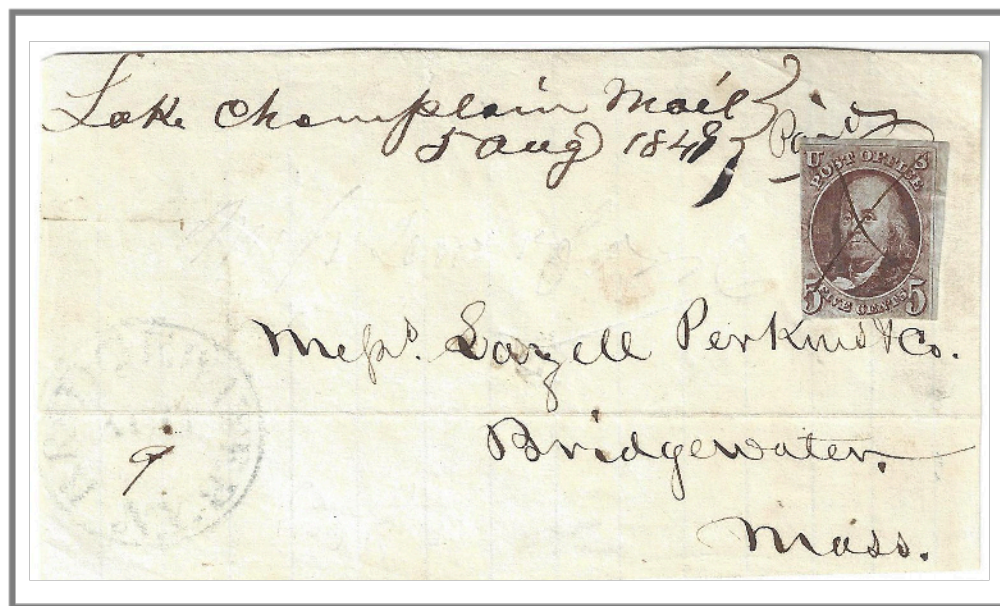 Lake Champlain Mail
5 Aug 1849 Paid
U S
POST OFFICE
FIVE CENTS
5 5
Messrs. Lazell Perkins & Co.
Bridgewater.
Mass.